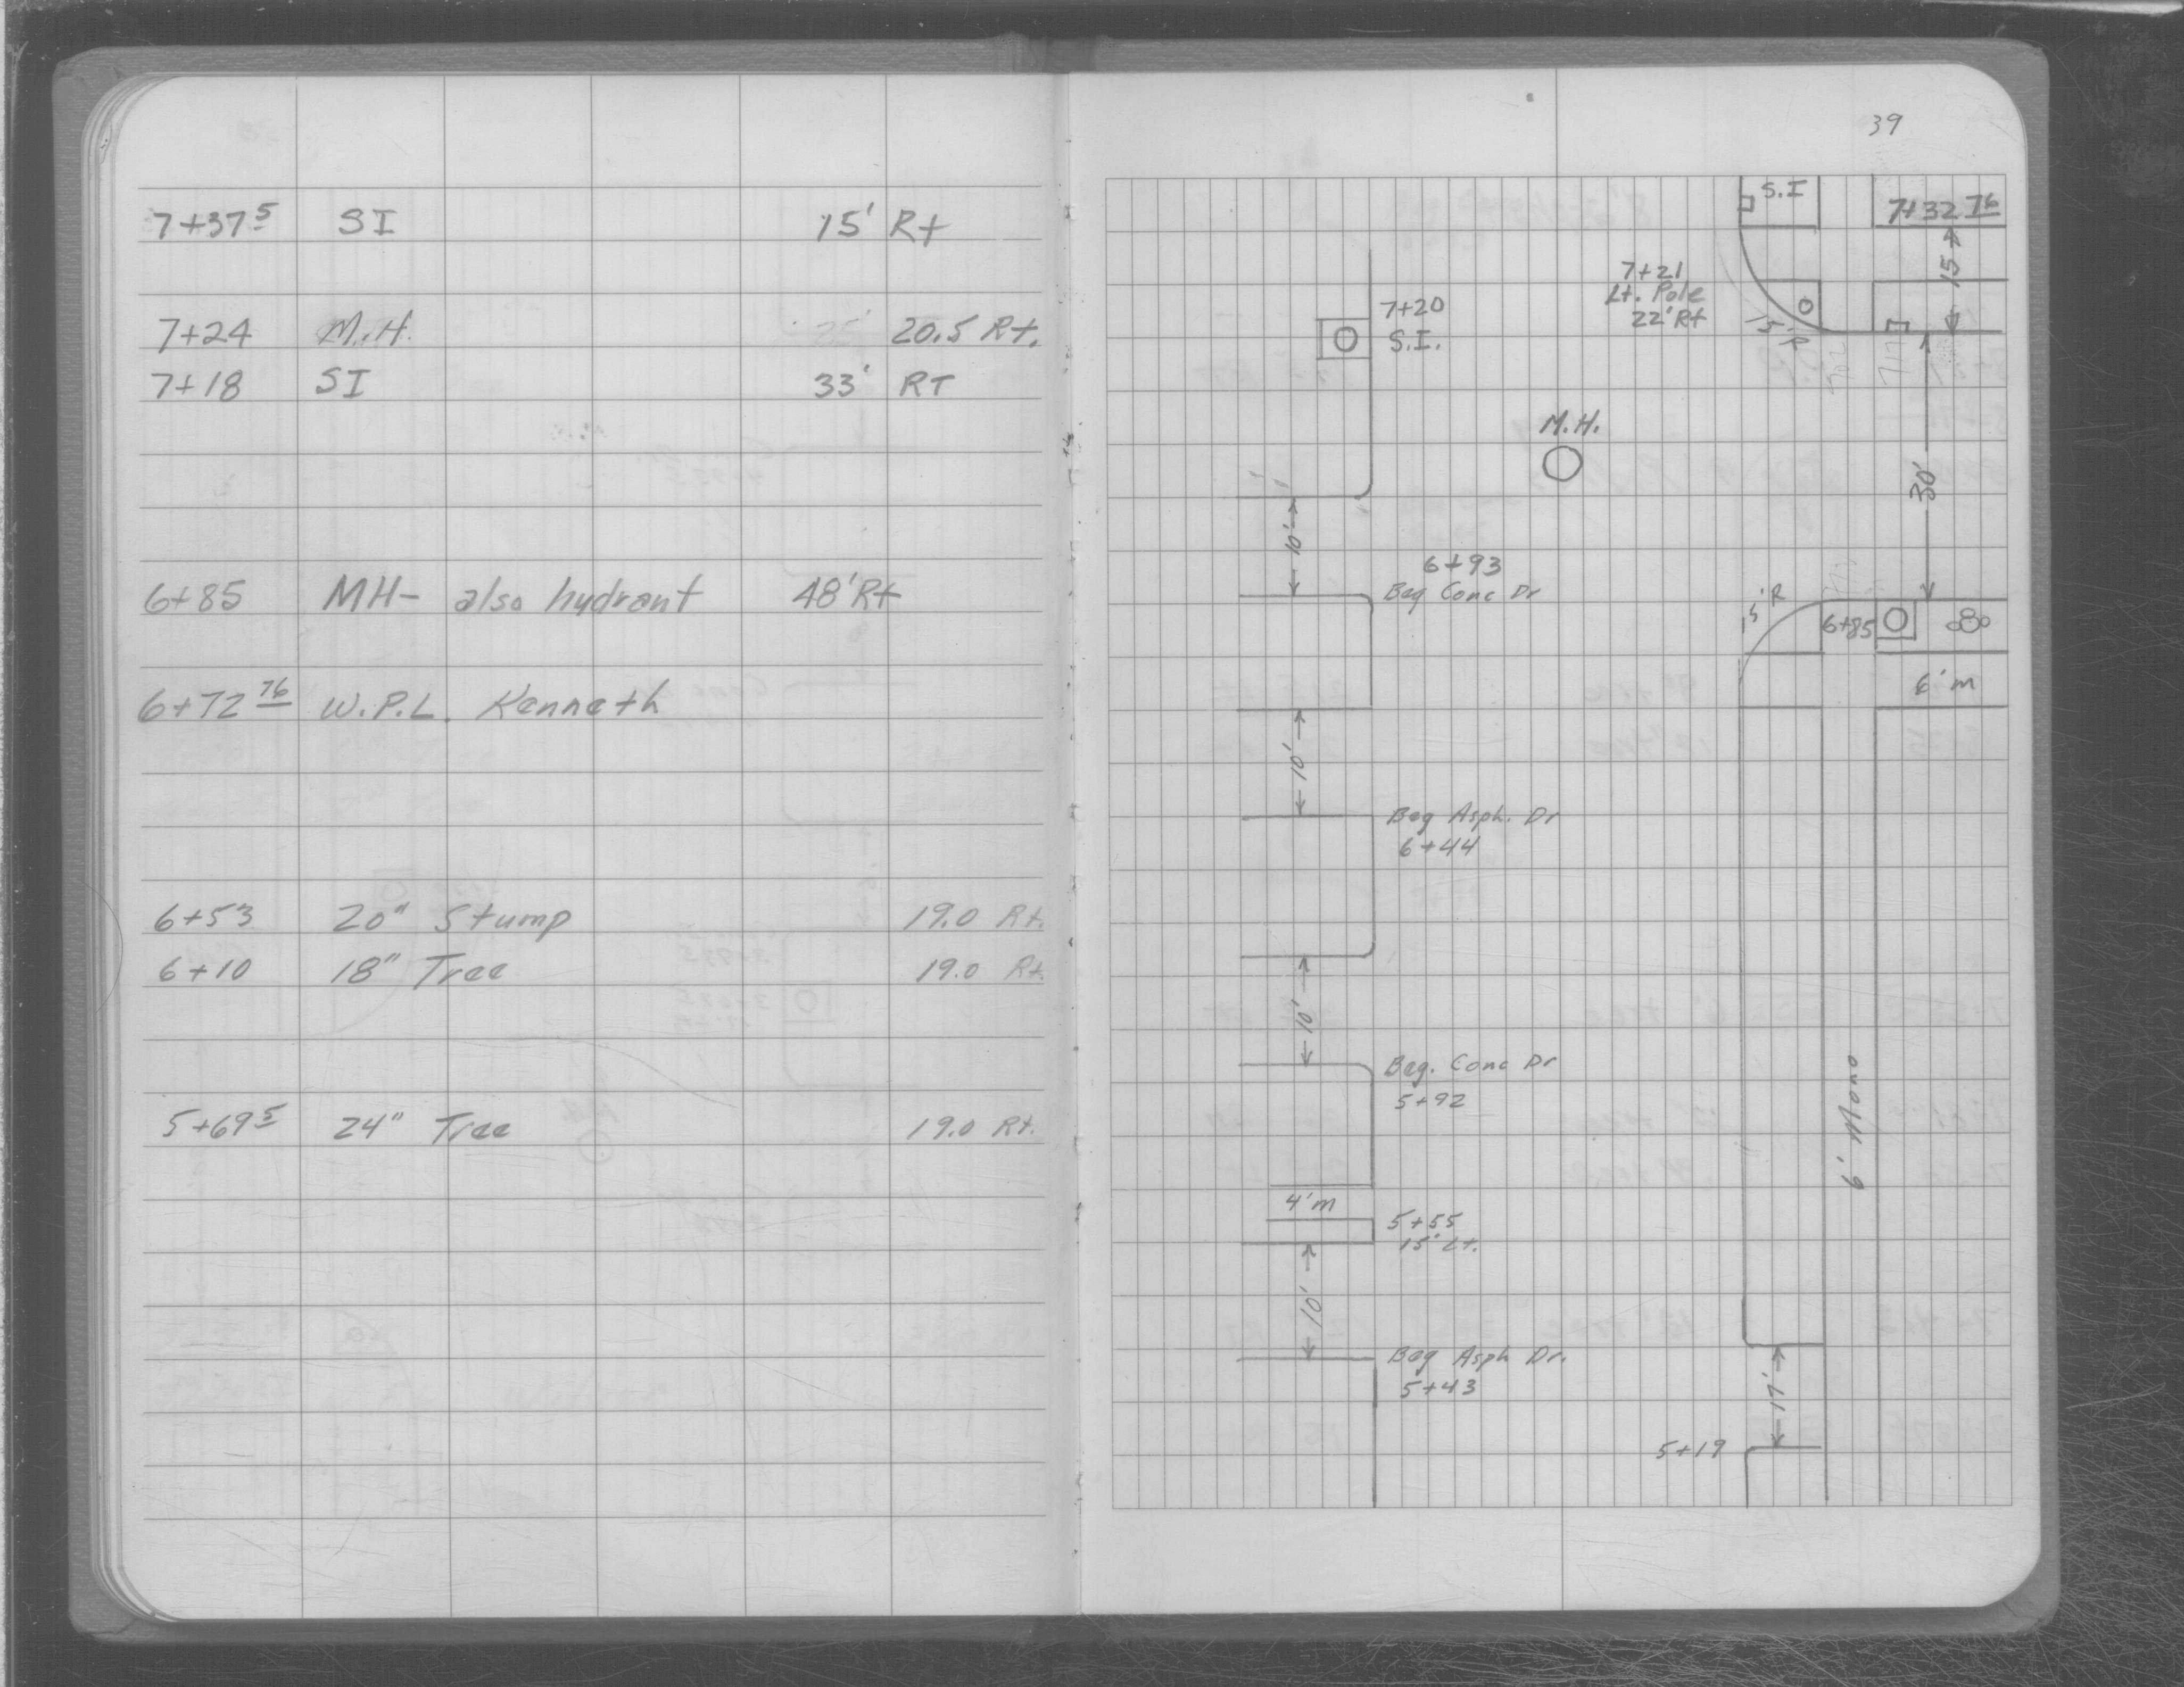 7+37⁵ SI 15' Rt
7+24 M.H. 20.5 Rt.
7+18 SI 33' RT
6+85 MH- also hydrant 48' Rt
6+72⁷⁶ W.P.L. Kenneth
6+53 20" Stump 19.0 Rt.
6+10 18" Tree 19.0 Rt.
5+69⁵ 24" Tree 19.0 Rt.
39
S.I
7+32 76
15'
7+21
Lt. Pole
22' Rt
15' R
7+20
S.I.
M.H.
30'
10'
6+93
Beg Conc Dr
15' R
6+85
6' m
10'
Beg Asph. Dr
6+44
10'
Beg. Conc Dr
5+92
6' Mono
4' m
5+55
15' Lt.
10'
Beg Asph Dr.
5+43
17'
5+19